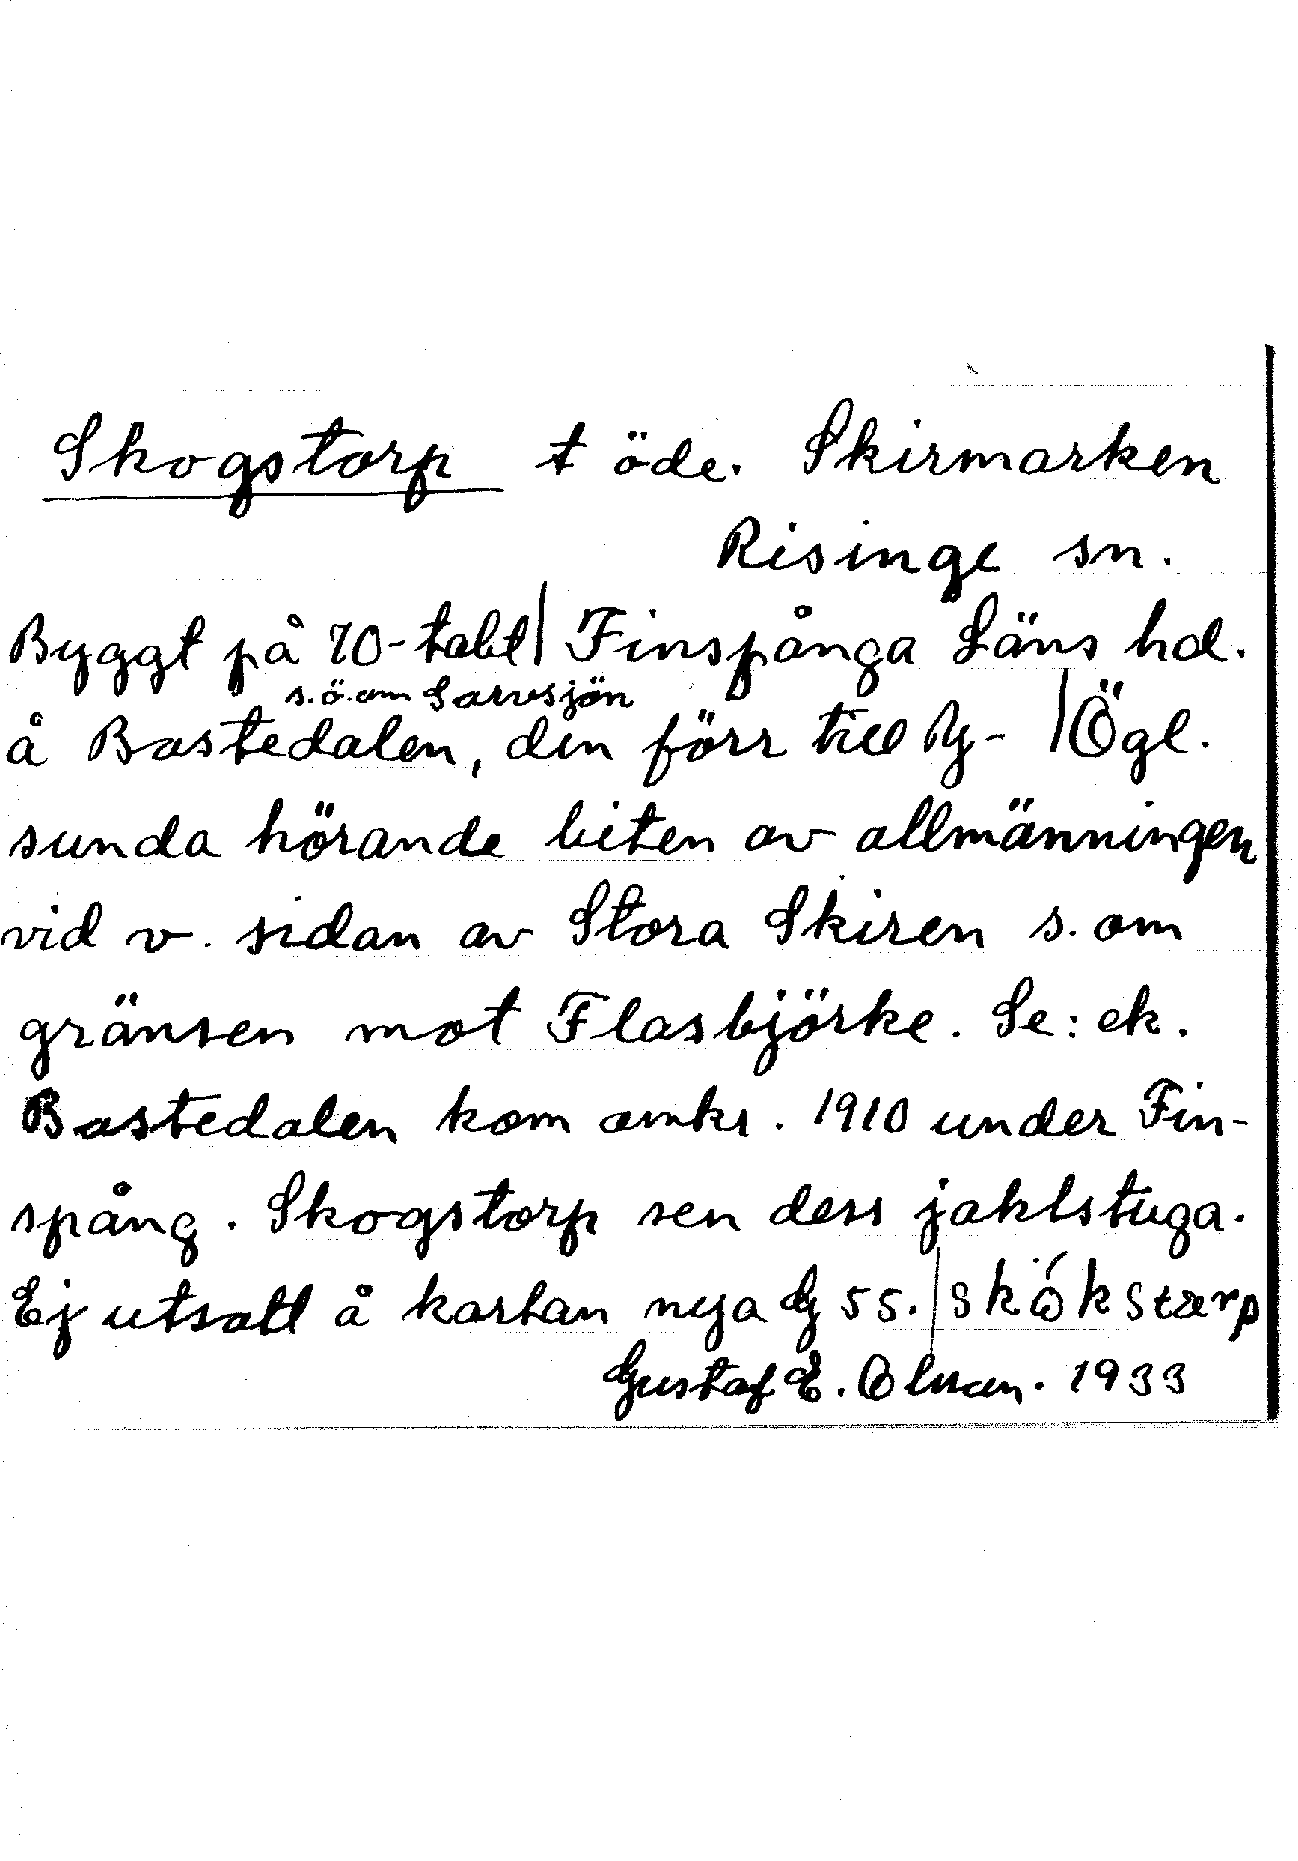 Skogstorp t öde. Skirmarken
Risinge sn.
Byggt på 70-talet | Finspånga Läns hd.
s.ö.om Sarvsjön
å Bastedalen, den förr till Ry- | Ögl.
sunda hörande biten av allmänningen
vid v. sidan av Stora Skiren s. om
gränsen mot Flasbjörke. Se: ek.
Bastedalen kom omkr. 1910 under Fin-
spång. Skogstorp sen dess jaktstuga.
Ej utsatt å kartan nya G 55. |
Gustaf E. Olsson. 1933